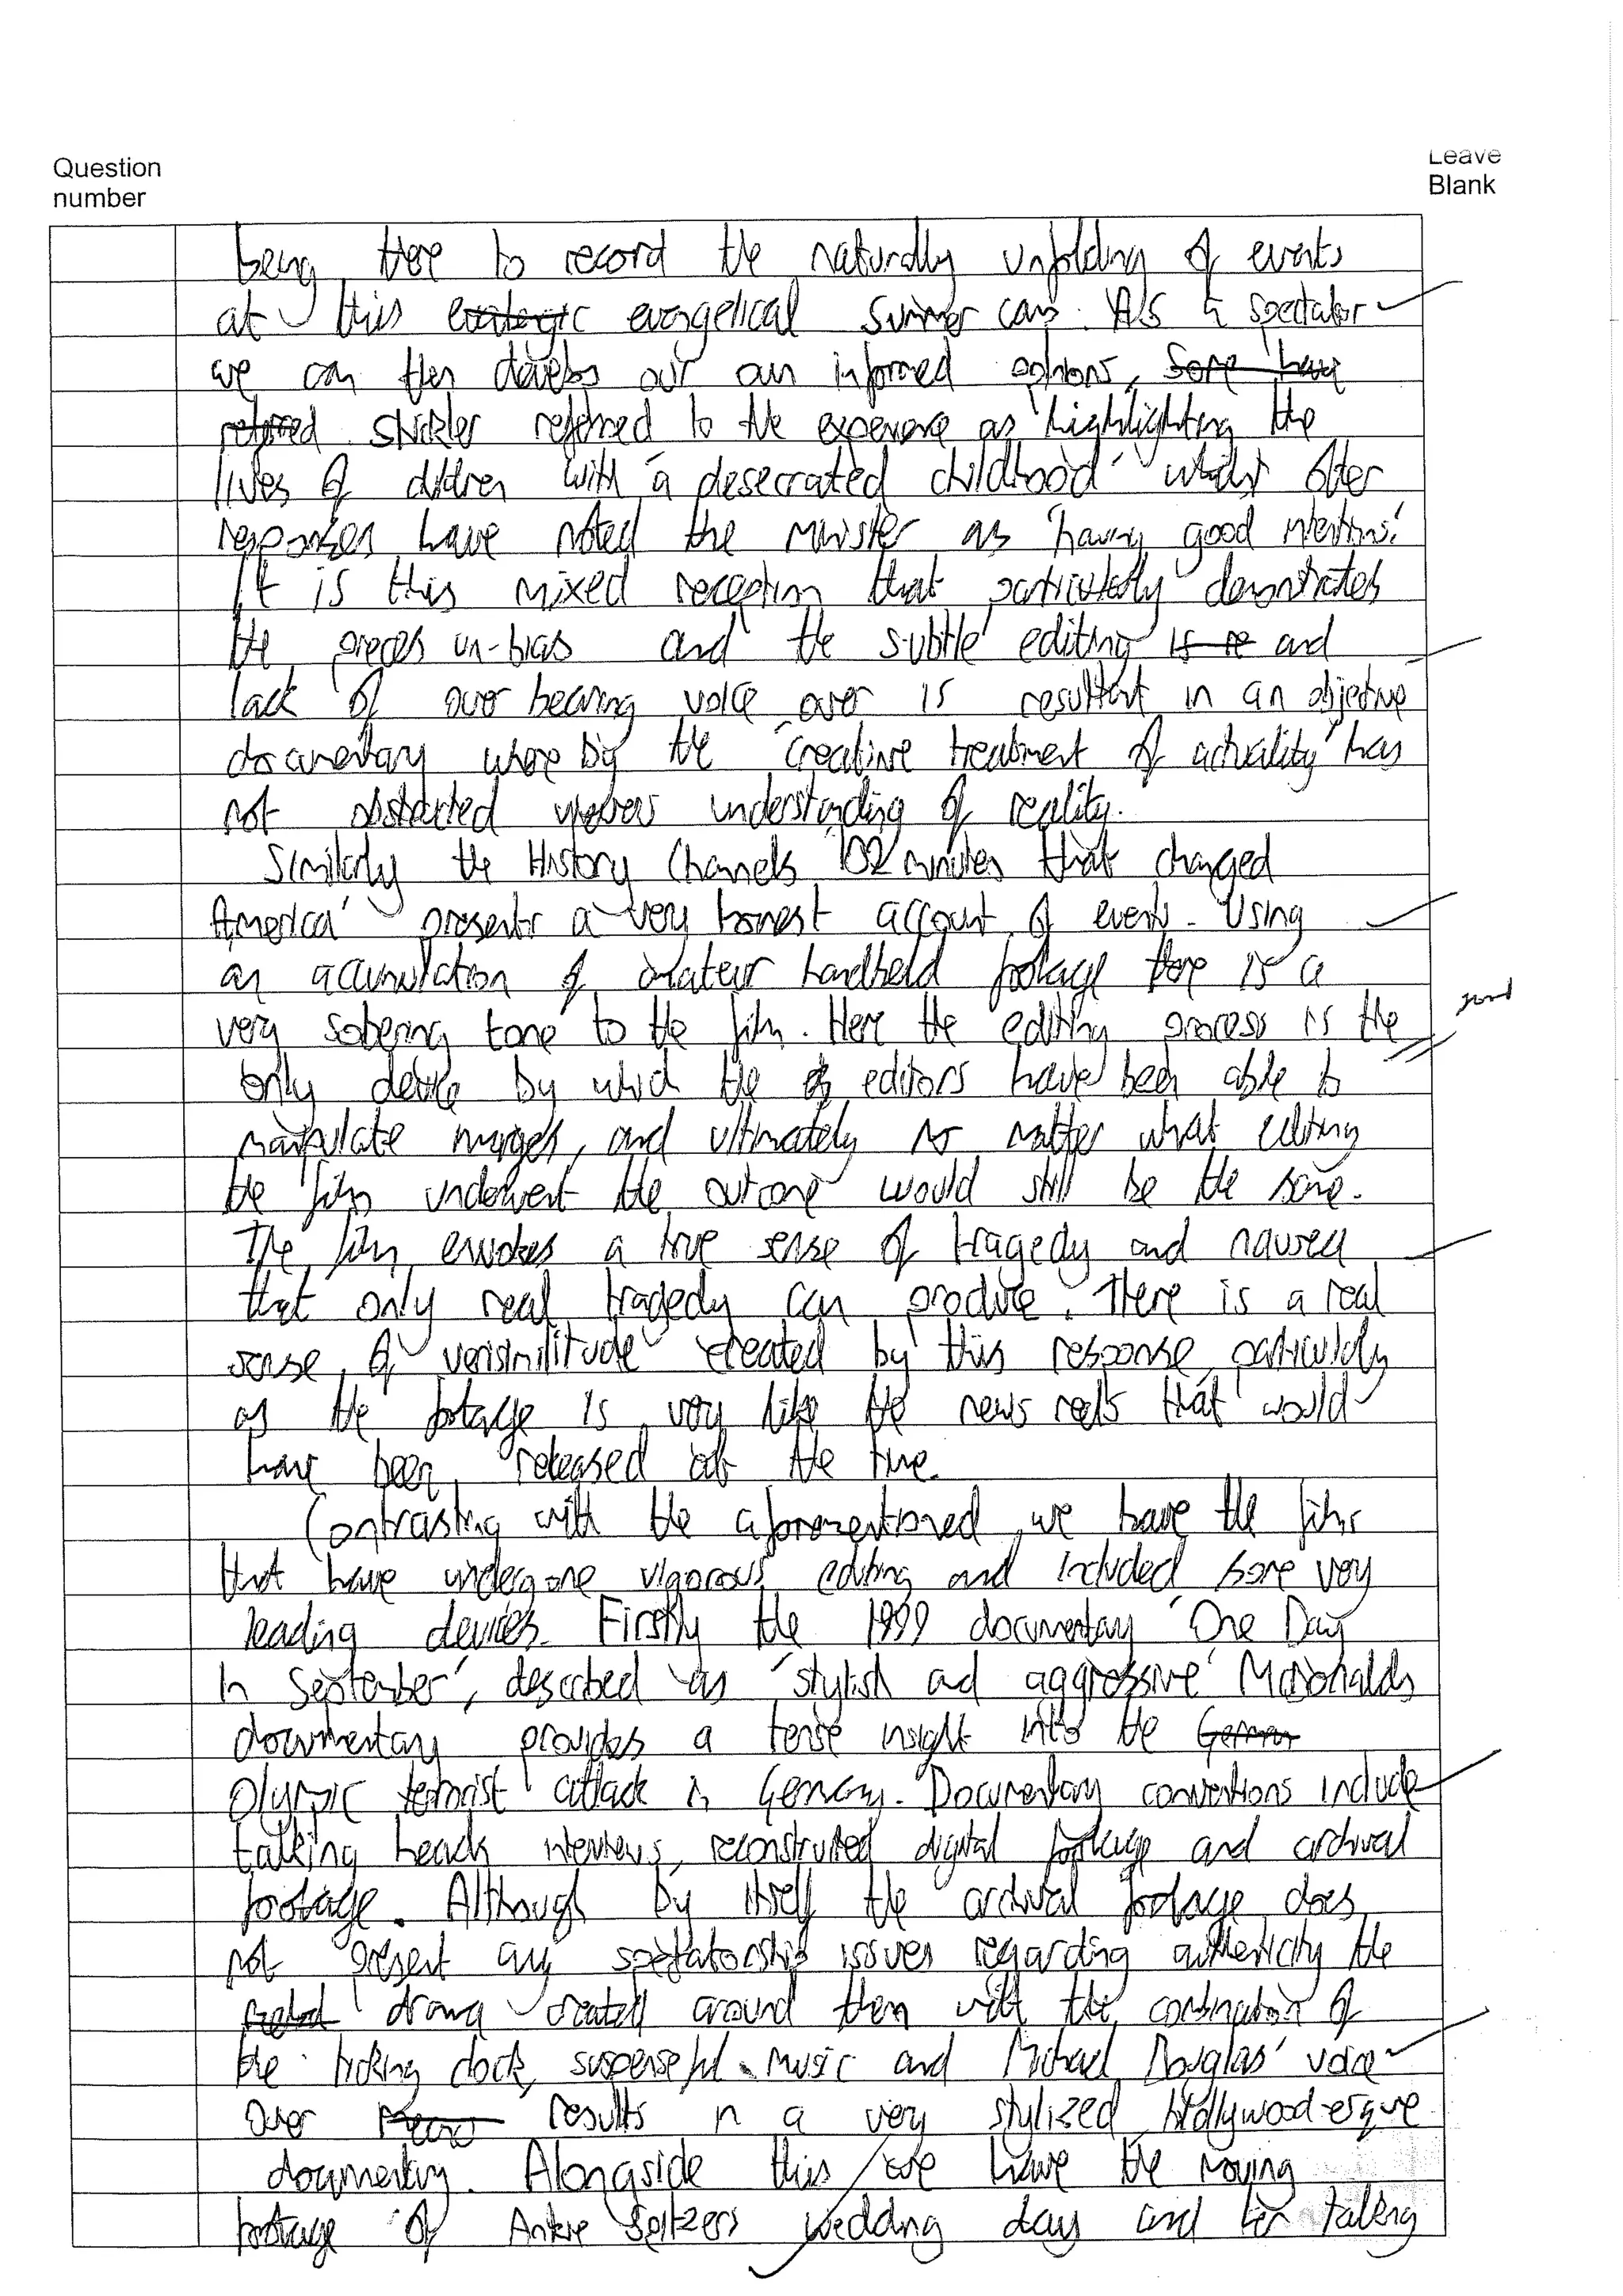 Question
number
Leave
Blank
being there to record the naturally unfolding of events
at this evangelical summer camp. As a spectator
we can then develop our own informed opinions, some have
referred Stickler referred to the experience as 'highlighting the
lives of children with a desecrated childhood' whilst other
responses have noted the minister as 'having good intentions.'
It is this mixed reception that particularly demonstrates
the pieces un-bias and the subtle editing is re and
lack of over bearing voice over is resultant in an objective
documentary where by the 'creative treatment of actuality' has
not obstructed viewers understanding of reality.
Similarly the History Channels '102 minutes that changed
America' presents a very honest account of events. Using
an accumulation of amateur handheld footage there is a
very sobering tone to the film. Here the editing process is the
good
only device by which the editors have been able to
manipulate images, and ultimately no matter what editing
the film underwent the outcome would still be the same.
The film evokes a true sense of tragedy and nausea
that only real tragedy can produce. There is a real
sense of verisimilitude created by this response, particularly
as the footage is very like the news reels that would
have been released at the time.
Contrasting with the aforementioned, we have the films
that have undergone vigorous editing and included some very
leading devices. Firstly the 1999 documentary 'One Day
In September', described as 'stylish and aggressive' McDonalds
documentary provides a tense insight into the German
Olympic terrorist attack in Germany. Documentary conventions include
talking heads interviews, reconstructed digital footage and archival
footage. Although by itself the archival footage does
not present any spectatorship issues regarding authenticity the
drama created around them with the combination of
the ticking clock, suspenseful music and Michael Douglas' voice
over results in a very stylized, hollywood-esque
documentary. Alongside this we have the moving
footage of Ankie Spitzers wedding day and her talking